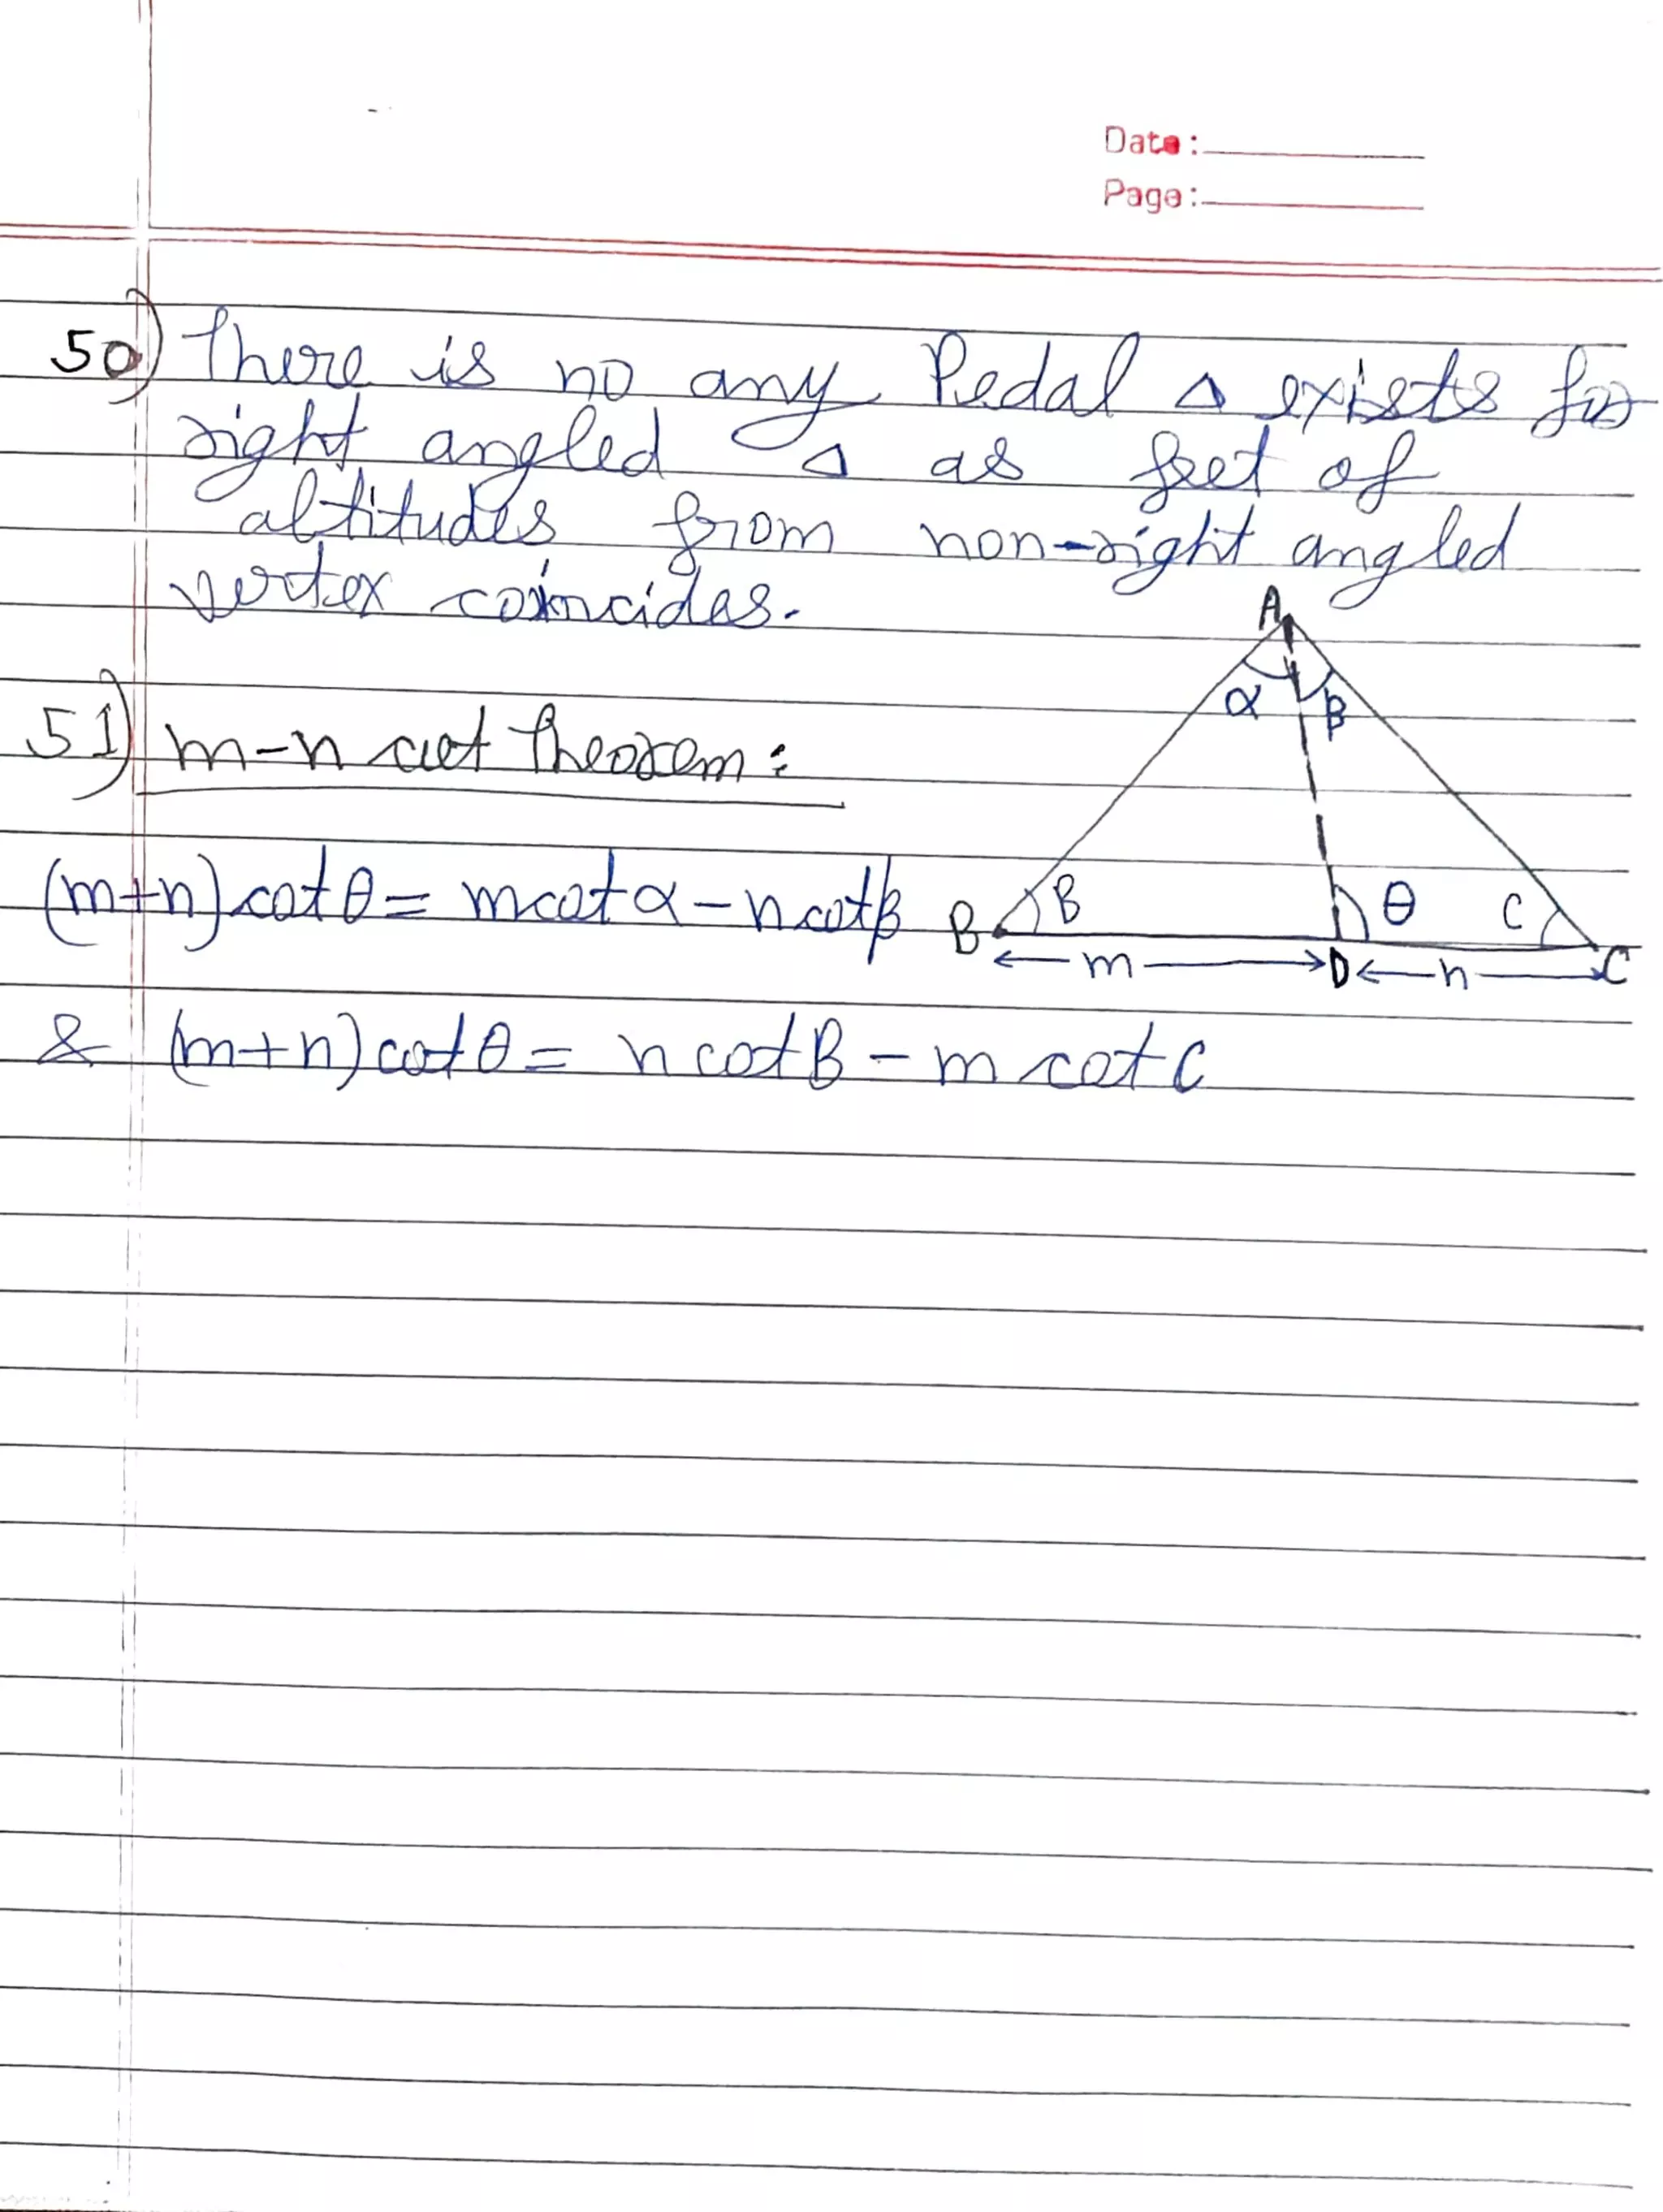 Date:
Page:
50) There is no any Pedal △ exists for
right angled △ as feet of
altitudes from non-right angled
vertex coincides.
51) m-n cot Theorem:
A
α β
(m+n) cot θ = m cot α - n cot β
B B θ C
m D n C
& (m+n) cot θ = n cot B - m cot C